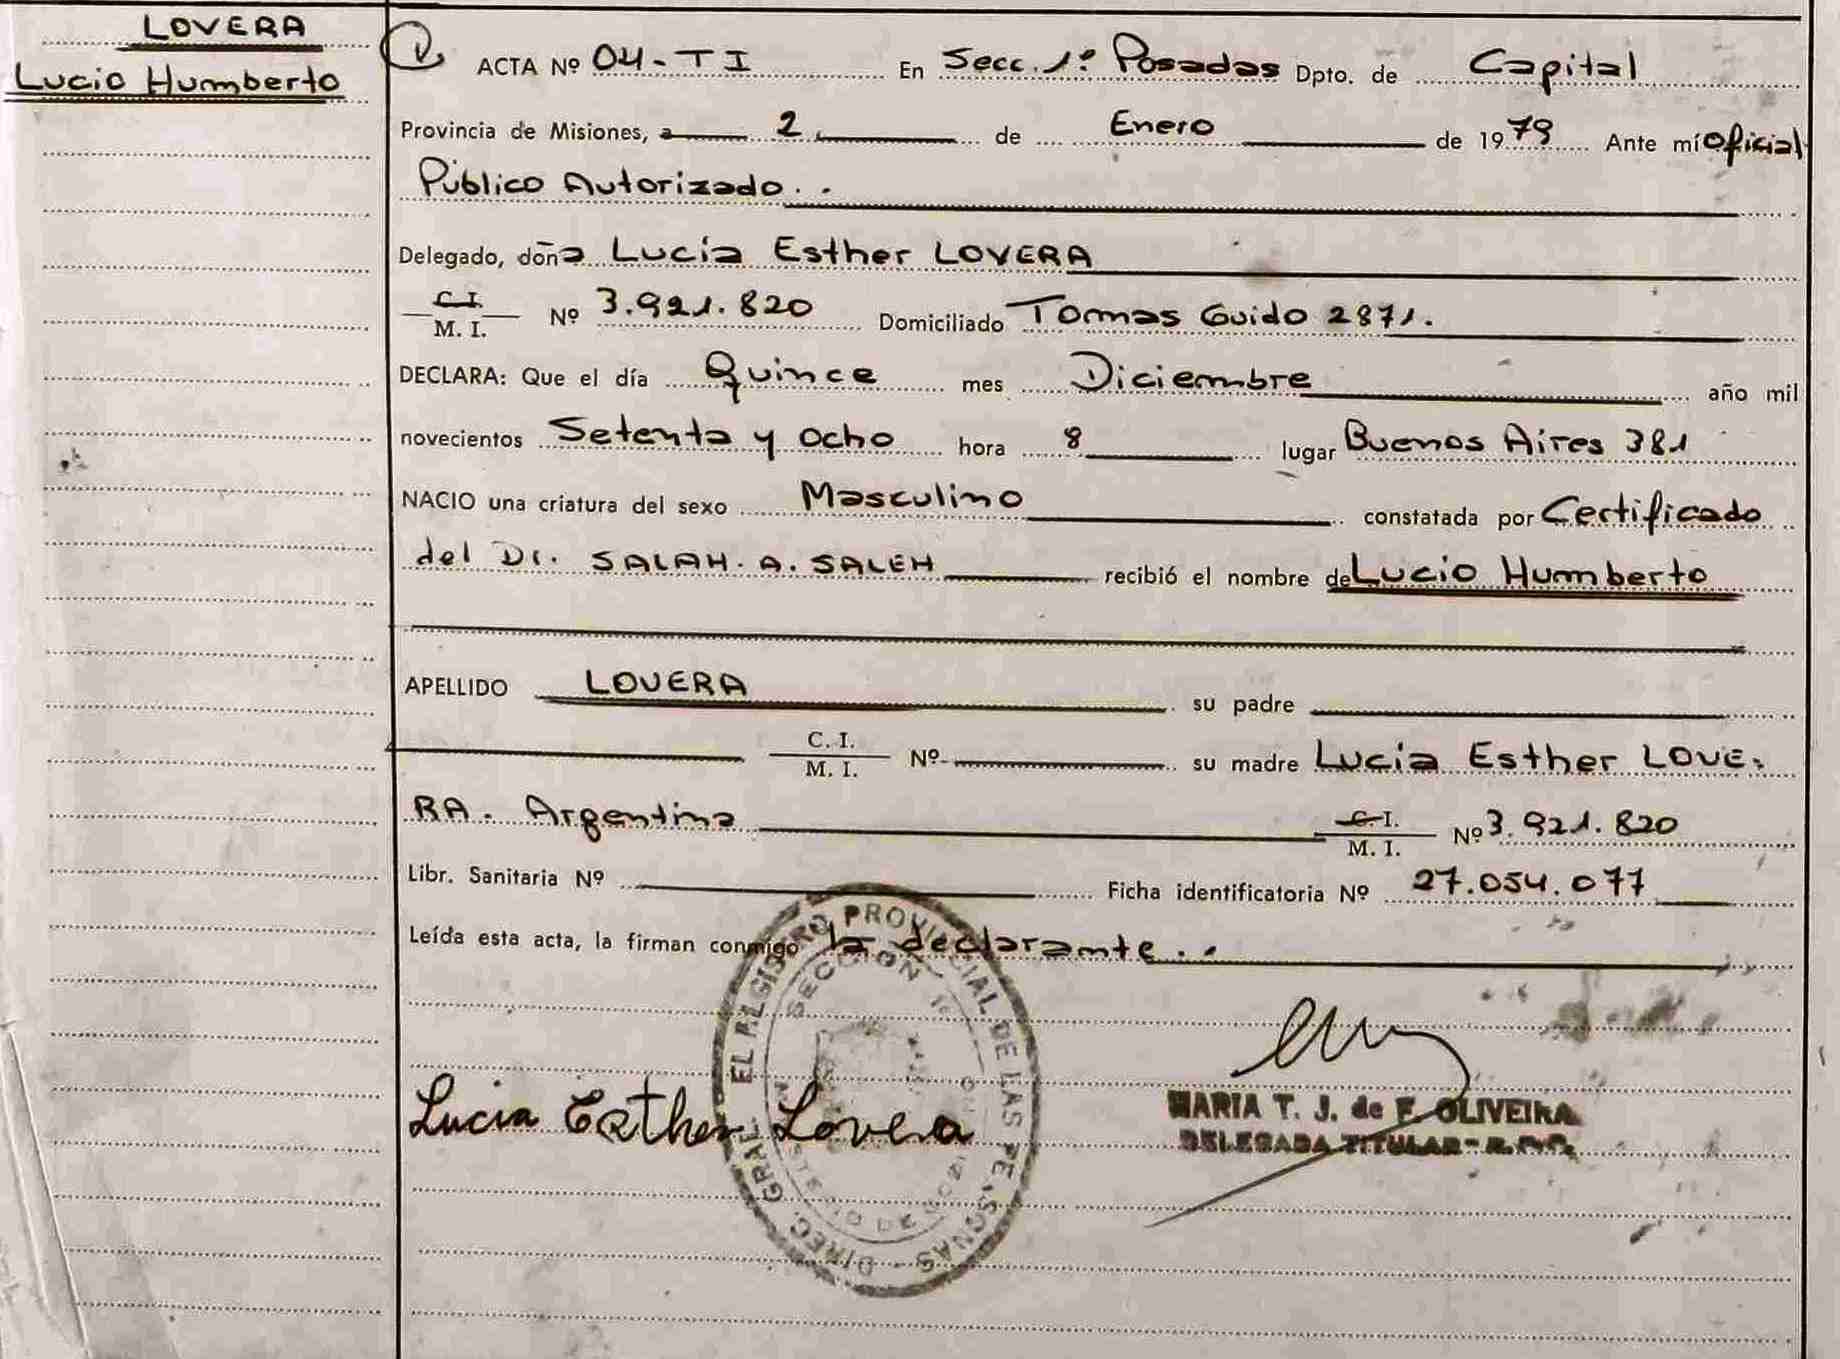 LOVERA
Lucio Humberto
ACTA Nº 04-TI En Secc. 1º Posadas Dpto. de Capital
Provincia de Misiones, a 2 de Enero de 1979 Ante mí Oficial
Público Autorizado..
Delegado, doña Lucía Esther LOVERA
C.I.
M. I. Nº 3.921.820 Domiciliado Tomas Guido 2871.
DECLARA: Que el día Quince mes Diciembre año mil
novecientos Setenta y Ocho hora 8 lugar Buenos Aires 381
NACIO una criatura del sexo Masculino constatada por Certificado
del Dr. SALAH. A. SALEH recibió el nombre de Lucio Humberto
APELLIDO LOVERA su padre
C. I.
M. I. Nº su madre Lucía Esther LOVE-
RA. Argentina C.I.
M. I. Nº 3.921.820
Libr. Sanitaria Nº Ficha identificatoria Nº 27.054.077
Leída esta acta, la firman conmigo la declarante..
DIREC. GRAL. REGISTRO PROVINCIAL DE LAS PERSONAS
SECCION
Lucia Esther Lovera
MARIA T. J. de F. OLIVEIRA
DELEGADA TITULAR